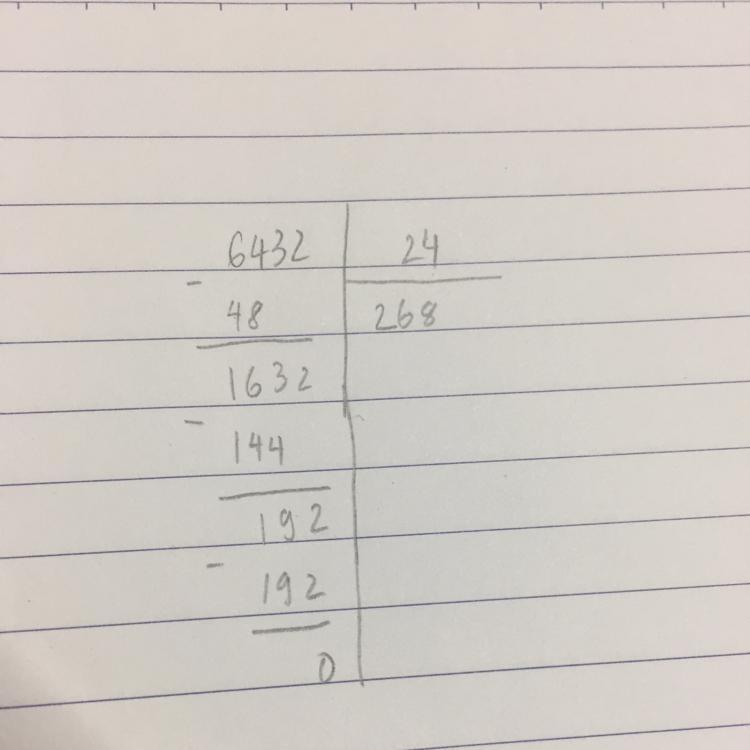 6432 | 24
- 48 | 268
1632
- 144
192
- 192
0